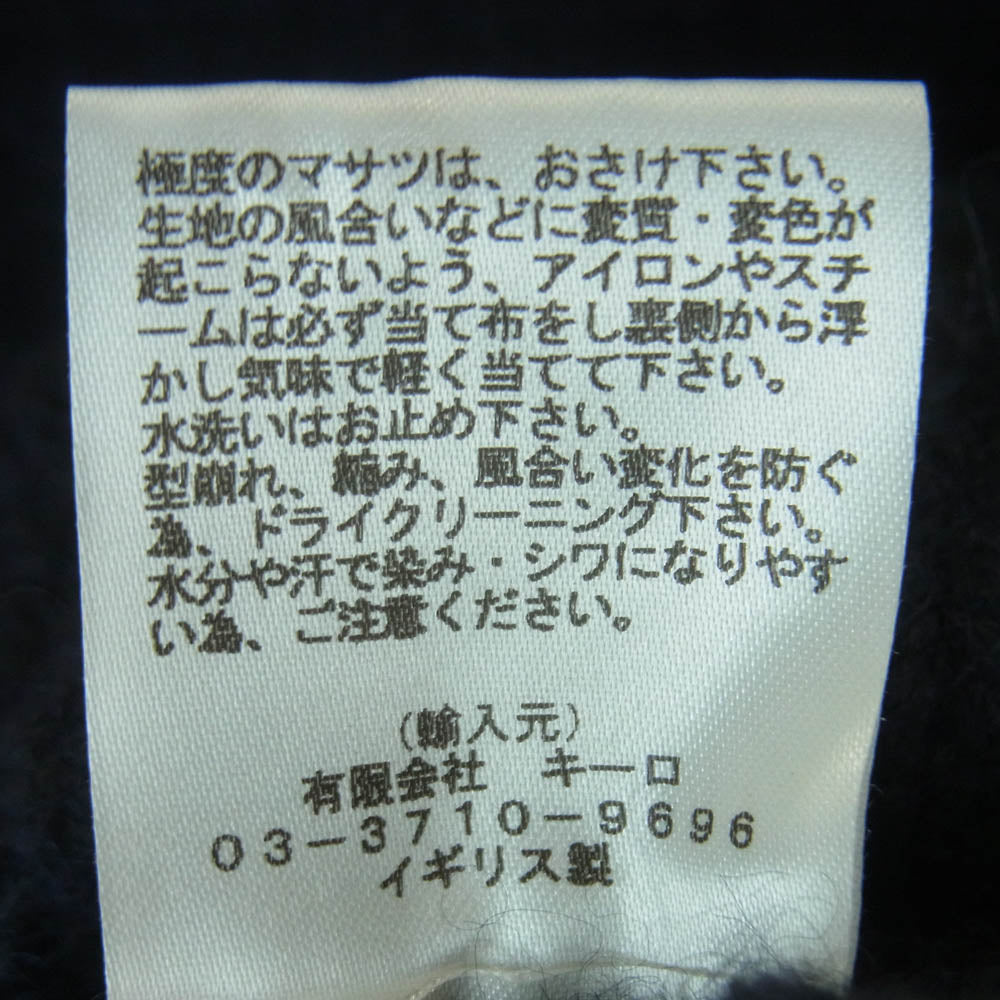 極度のマサツは、おさけ下さい。
生地の風合いなどに変質・変色が
起こらないよう、アイロンやスチ
ームは必ず当て布をし裏側から浮
かし気味で軽く当てて下さい。
水洗いはお止め下さい。
型崩れ、縮み、風合い変化を防ぐ
為、ドライクリーニング下さい。
水分や汗で染み・シワになりやす
い為、ご注意ください。
(輸入元)
有限会社 キーロ
03-3710-9696
イギリス製